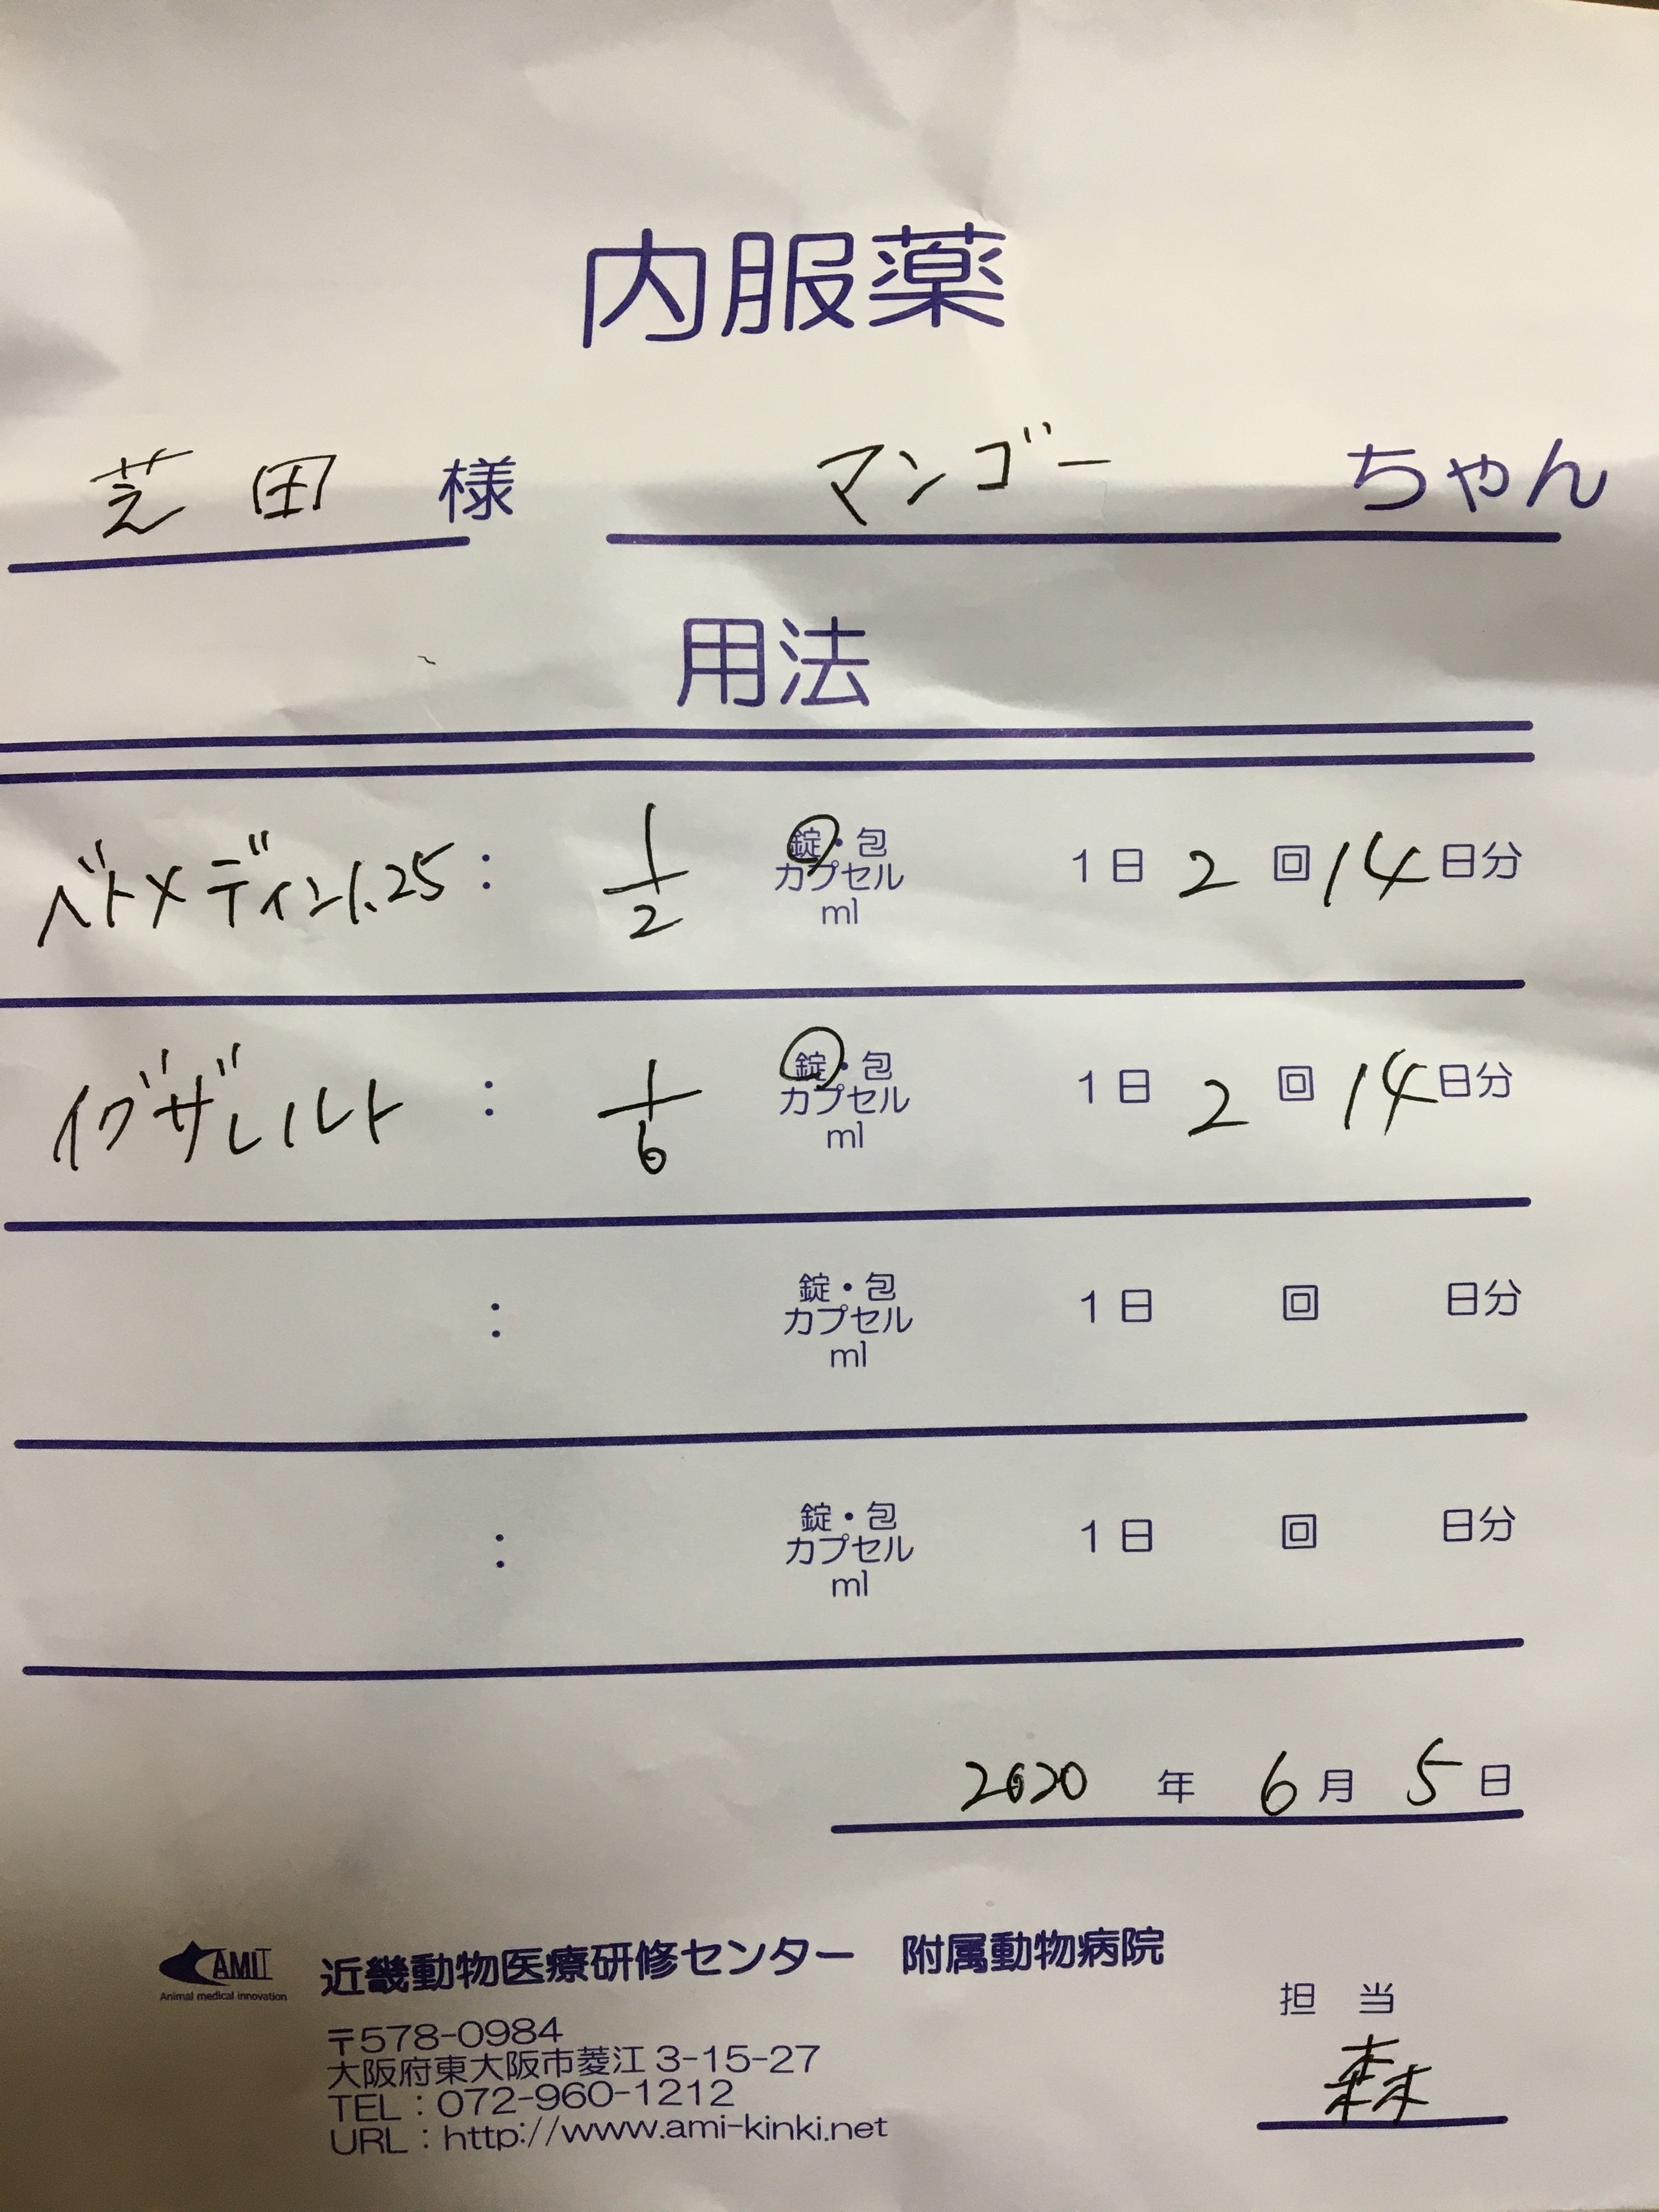 内服薬
芝田 様 マンゴー ちゃん
用法
ベトメディン1.25 : 1/2 錠・包 1日 2 回 14 日分
カプセル
ml
イグザレルト : 1/6 錠・包 1日 2 回 14 日分
カプセル
ml
: 錠・包 1日 回 日分
カプセル
ml
: 錠・包 1日 回 日分
カプセル
ml
2020 年 6 月 5 日
AMI
Animal medical innovation
近畿動物医療研修センター 附属動物病院
〒578-0984
大阪府東大阪市菱江 3-15-27
TEL:072-960-1212
URL:http://www.ami-kinki.net
担 当
森